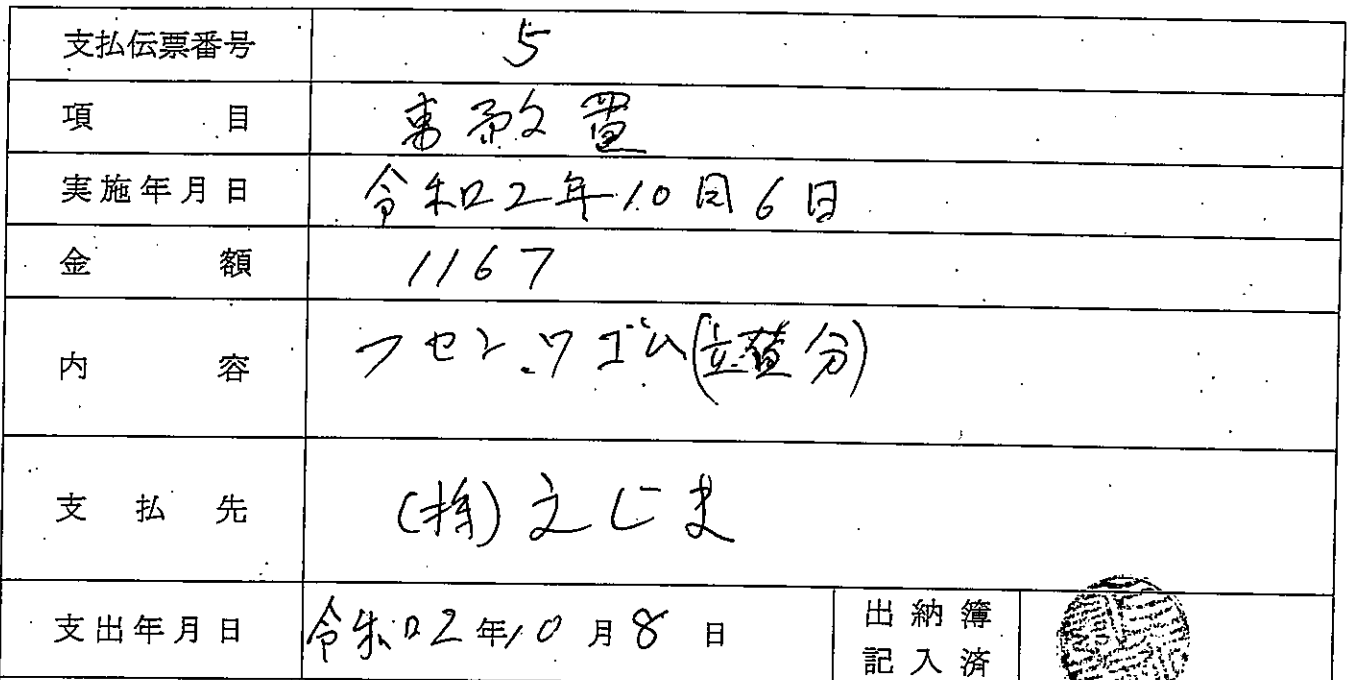 支払伝票番号 5
項目 事務費
実施年月日 令和2年10月6日
金額 1167
内容 フセン.ワゴム(立替分)
支払先 (株)えじま
支出年月日 令和2年10月8日
出納簿
記入済